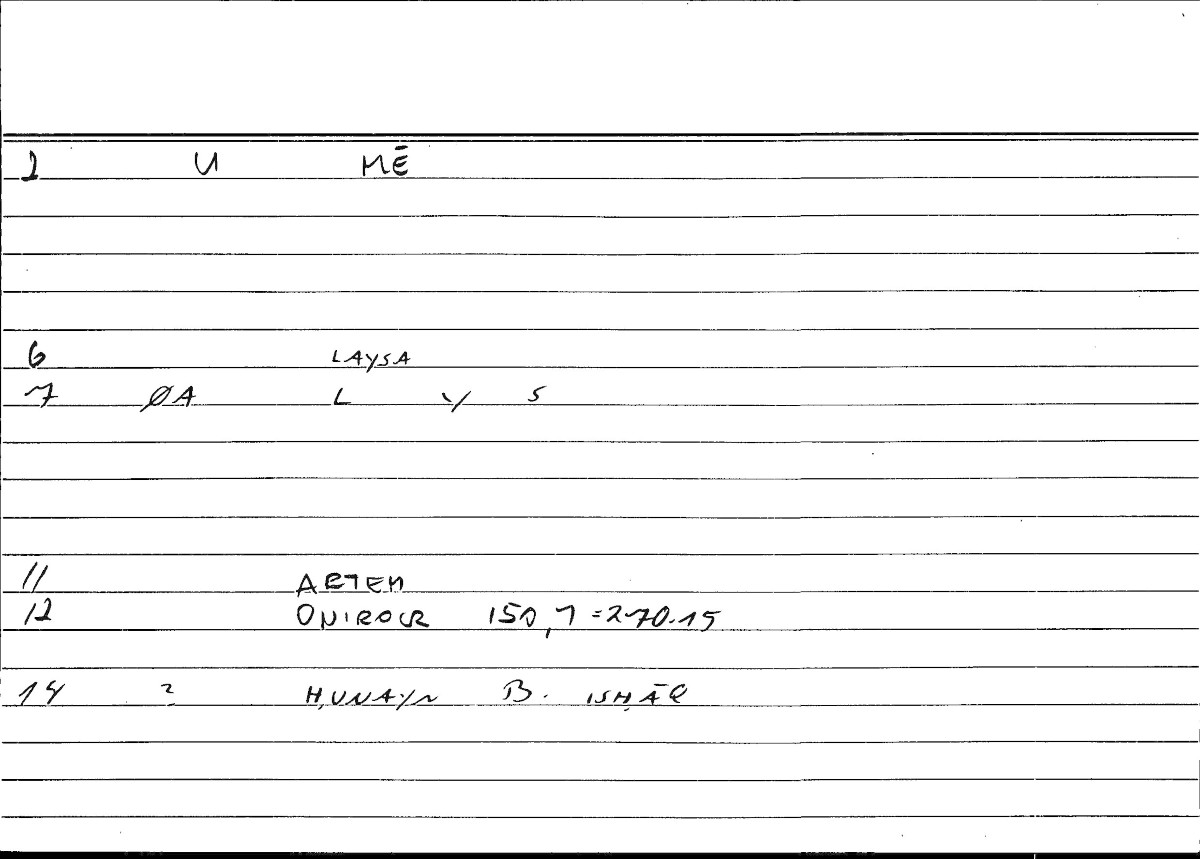 2 U MĒ
6 LAYSA
7 ØA L Y S
11 ARTEM
12 ONIROCR 150,7=270.15
14 ? ḤUNAYN B. ISḤĀQ